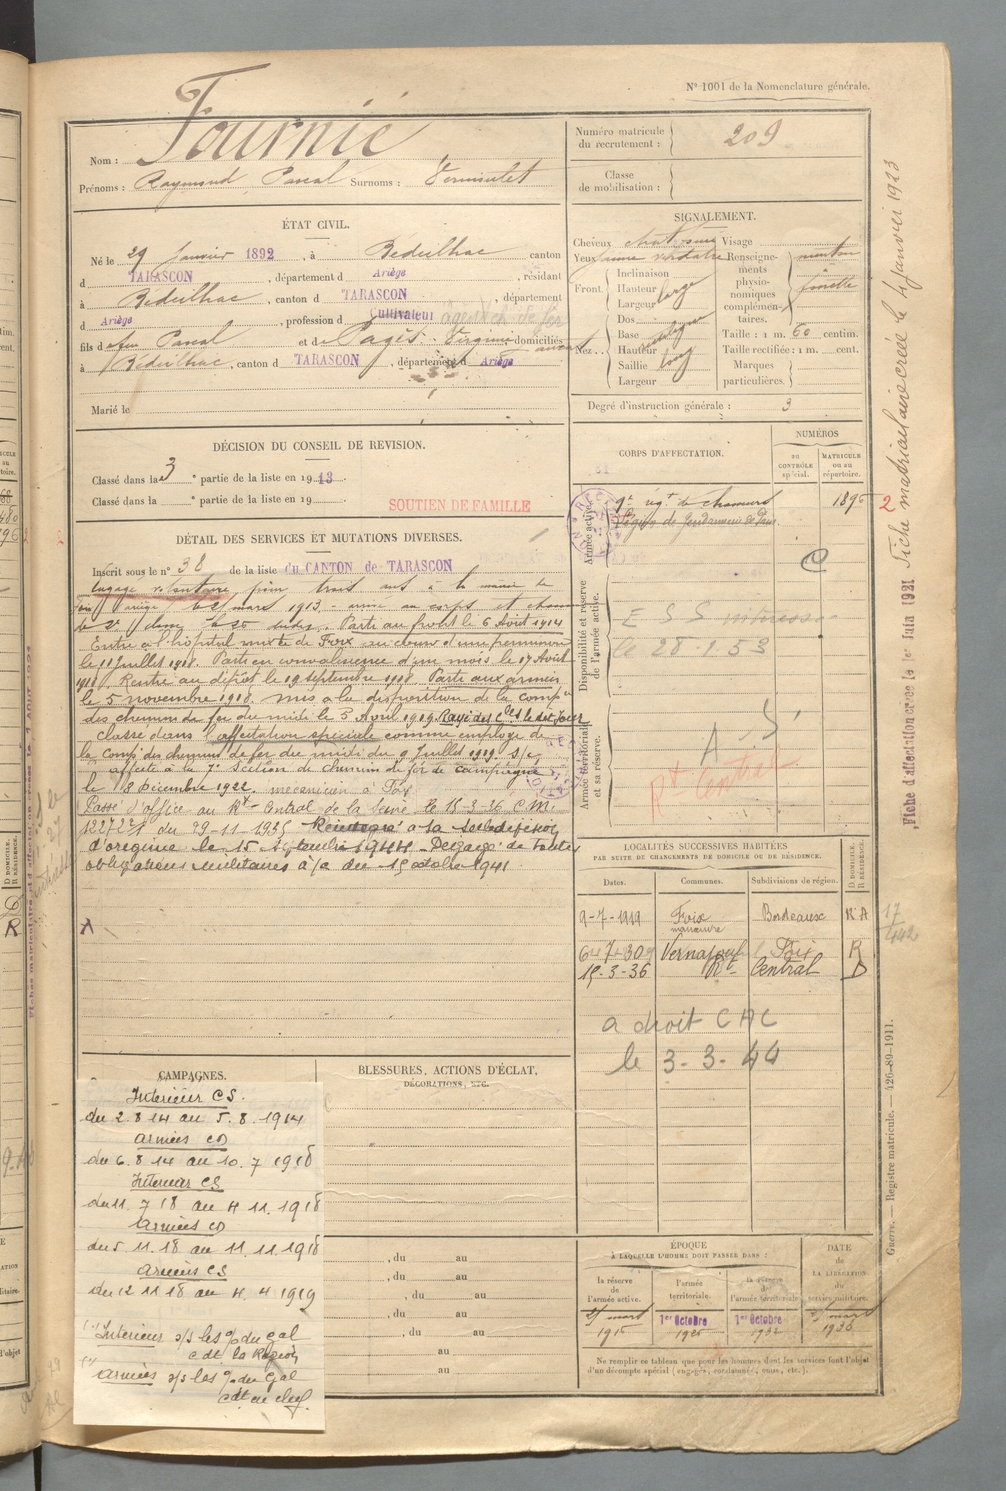 N° 1001 de la Nomenclature générale.
Nom : Fournié
Prénoms : Raymond Pascal Surnoms :
Numéro matricule du recrutement : 209
Classe de mobilisation :
ÉTAT CIVIL.
Né le 29 Janvier 1892, à Bédeilhac canton
d TARASCON, département d Ariège, résidant
à Bédeilhac, canton d TARASCON, département
d Ariège, profession de Cultivateur
fils de feu Pascal et de Pagès Virginie domiciliés
à Bédeilhac, canton de TARASCON, département d Ariège
Marié le
SIGNALEMENT.
Cheveux châtains Visage
Yeux jaune verdâtre
Front. Inclinaison
Hauteur large
Largeur
Nez. Dos
Base
Hauteur long
Saillie
Largeur
Renseignements physionomiques complémentaires. menton à fossette
Taille : 1 m. 60 centim.
Taille rectifiée : 1 m. cent.
Marques particulières.
Degré d'instruction générale : 3
DÉCISION DU CONSEIL DE REVISION.
Classé dans la 3e partie de la liste en 1913.
Classé dans la e partie de la liste en 19
SOUTIEN DE FAMILLE
DÉTAIL DES SERVICES ET MUTATIONS DIVERSES.
Inscrit sous le n° 38 de la liste du CANTON de TARASCON
Engagé volontaire pour trois ans à la mairie de
Foix Ariège le 21 mars 1913. - arrivé au corps et chasseur
de 2e classe le dit. Parti au front le 6 Août 1914
Entré à l'hôpital mixte de Foix au cours d'une permission
le 11 Juillet 1918. Parti en convalescence d'un mois le 17 Août
1918. Rentré au dépôt le 19 septembre 1918 Parti aux armées
le 5 novembre 1918. Mis à la disposition de la Compie
des chemins de fer du midi le 5 Avril 1919. Rayé des Cles le dit jour
Classé dans l'affectation spéciale comme employé de
la Comp. des chemins de fer du midi du 9 Juillet 1919.
affecté à la 7e Section de chemins de fer de campagne
le 18 Décembre 1922. mécanicien à Foix
Passé d'office au Rt Central de la Seine le 15-3-36 C.M.
du 29-11-1935 Réintégré à sa subdivision
d'origine le 15 Septembre 1944. Dégagé de toutes
obligations militaires à/c du 15 octobre 1941
CORPS D'AFFECTATION.
NUMÉROS
AU CONTRÔLE spécial.
MATRICULE ou au répertoire.
Armée active.
9e régt de chasseurs 1896
Légion de Gendarmerie de Paris
Disponibilité et réserve de l'armée active.
le 28-1-53
Armée territoriale et sa réserve.
A S
Rt Central
LOCALITÉS SUCCESSIVES HABITÉES
PAR SUITE DE CHANGEMENTS DE DOMICILE OU DE RÉSIDENCE.
Dates. Communes. Subdivisions de région. D DOMICILE. R RÉSIDENCE.
9-7-1919 Foix Bordeaux R A
manœuvre
Foix R
15-3-36 Rt Central D
a droit CAC
le 3-3-44
CAMPAGNES.
Intérieur CS.
du 2.8.14 au 5.8.1914
armées CD
du 6.8.14 au 10.7 1918
Intérieur CS
du 11.7 18 au 4 11.1918
armées CD
du 5.11.18 au 11.11.1918
armées CS
du 12 11 18 au 4 4 1919
Intérieur s/s les o/ du Gal
cdt la Région
armées s/s les o/ du Gal
cdt en chef.
BLESSURES, ACTIONS D'ÉCLAT,
DÉCORATIONS, ETC.
, du au
, du au
, du au
, du au
, du au
au
au
ÉPOQUE
À LAQUELLE L'HOMME DOIT PASSER DANS :
la réserve de l'armée active.
21 mars 1915
l'armée territoriale.
1er Octobre 1926
la réserve de l'armée territoriale.
1er Octobre 1932
DATE DE LA LIBÉRATION du service militaire.
21 mars 1938
Ne remplir ce tableau que pour les hommes dont les services font l'objet
d'un décompte spécial (engagés, condamnés, omis, etc.).
Fiche matriculaire créée le 4 janvier 1923
Fiche d'affectation créée le 1er Juin 1921
Guerre. — Registre matricule. — 426-89-1911.